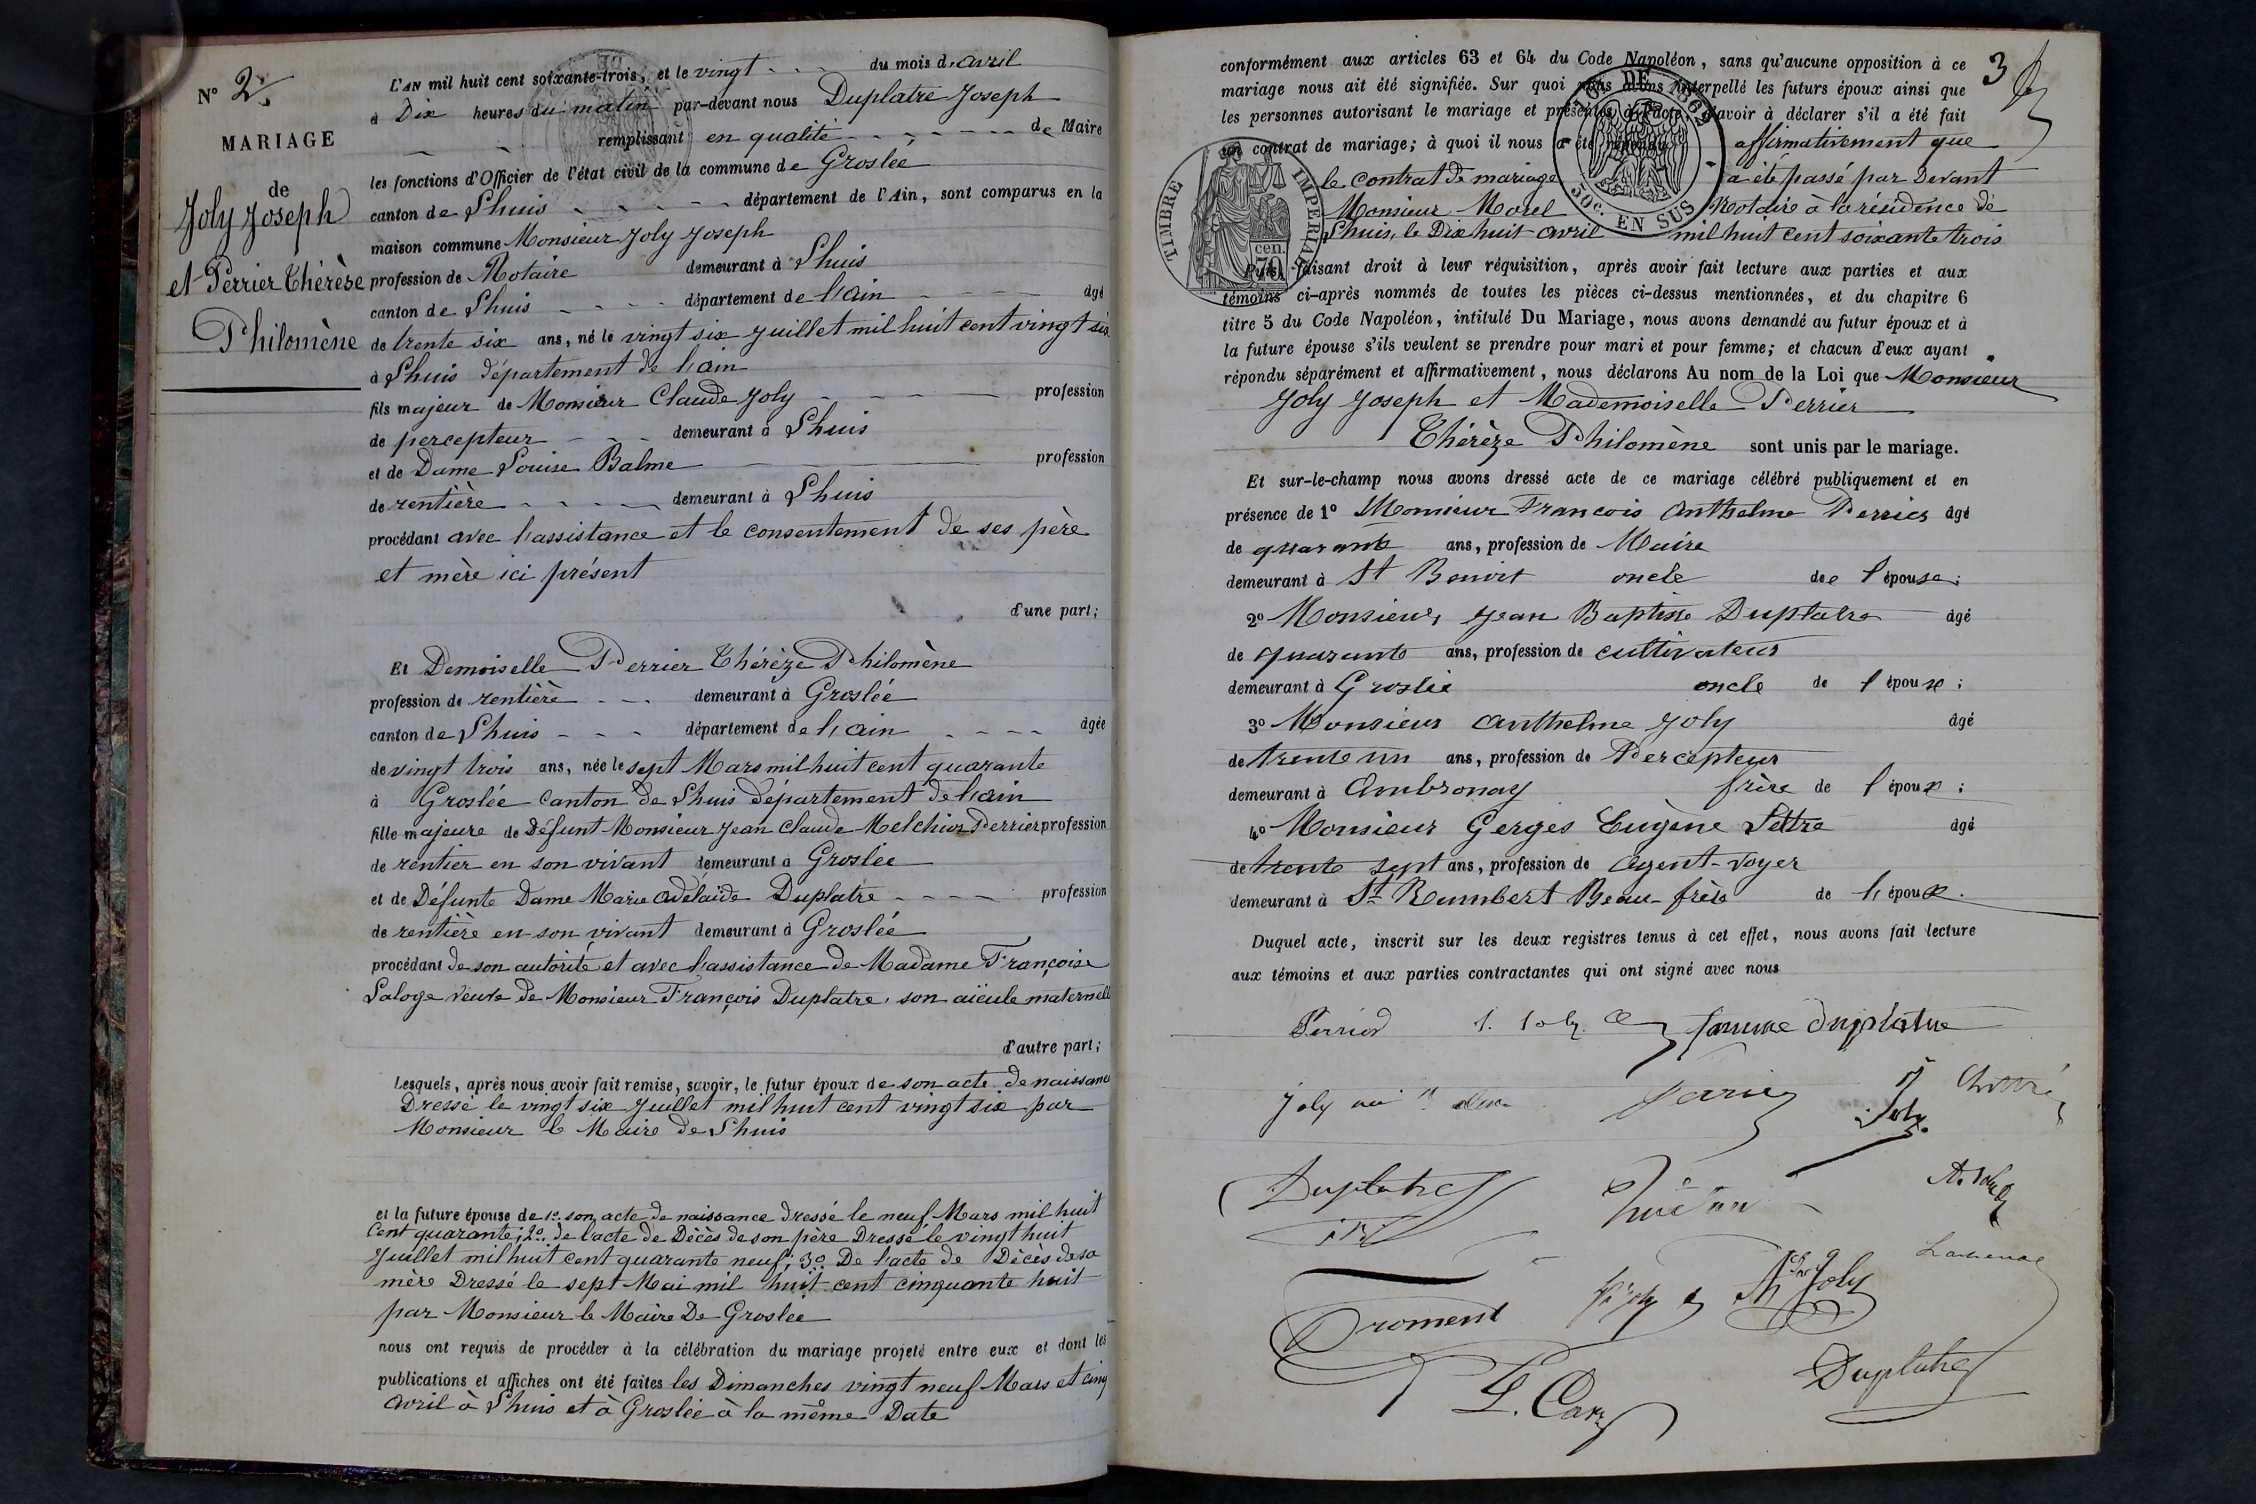 N° 2
MARIAGE
de
Joly Joseph
et Perrier Thérèse
Philomène
L'AN mil huit cent soixante-trois, et le vingt du mois d'avril
à Dix heures du matin par-devant nous Duplatre Joseph
remplissant en qualité de Maire
les fonctions d'Officier de l'état civil de la commune de Groslée
canton de Lhuis département de l'Ain, sont comparus en la
maison commune Monsieur Joly Joseph
profession de Notaire demeurant à Lhuis
canton de Lhuis département de l'ain âgé
de trente six ans, né le vingt six Juillet mil huit cent vingt six
à Lhuis département de l'ain
fils majeur de Monsieur Claude Joly profession
de percepteur demeurant à Lhuis
et de Dame Louise Balme profession
de rentière demeurant à Lhuis
procédant avec l'assistance et le consentement de ses père
et mère ici présent
d'une part;
Et Demoiselle Perrier Thérèze Philomène
profession de rentière demeurant à Groslée
canton de Lhuis département de l'ain âgée
de vingt trois ans, née le sept Mars mil huit cent quarante
à Groslée canton de Lhuis département de l'ain
fille majeure de Défunt Monsieur Jean Claude Melchior Perrier profession
de rentier en son vivant demeurant à Groslée
et de Défunte Dame Marie adélaïde Duplatre profession
de rentière en son vivant demeurant à Groslée
procédant de son autorité et avec l'assistance de Madame Françoise
Laloge veuve de Monsieur François Duplatre, son aïeule maternelle
d'autre part;
Lesquels, après nous avoir fait remise, savoir, le futur époux de son acte de naissance
Dressé le vingt six Juillet mil huit cent vingt six par
Monsieur le Maire de Lhuis
et la future épouse de 1° son acte de naissance dressé le neuf Mars mil huit
Cent quarante; 2° de l'acte de Décès de son père Dressé le vingt huit
Juillet mil huit cent quarante neuf; 3° De l'acte de Décès de sa
mère Dressé le sept Mai mil huit cent cinquante huit
par Monsieur le Maire De Groslée
nous ont requis de procéder à la célébration du mariage projeté entre eux et dont les
publications et affiches ont été faites les Dimanches vingt neuf Mars et cinq
avril à Lhuis et à Groslée à la même Date
3
conformément aux articles 63 et 64 du Code Napoléon, sans qu'aucune opposition à ce
mariage nous ait été signifiée. Sur quoi nous avons interpellé les futurs époux ainsi que
les personnes autorisant le mariage et présentes à l'acte, d'avoir à déclarer s'il a été fait
un contrat de mariage; à quoi il nous a été répondu affirmativement que
le contrat de mariage a été passé par Devant
Monsieur Morel Notaire à la résidence de
Lhuis, le Dix huit avril mil huit cent soixante trois
10e DE 1862
50c. EN SUS
TIMBRE IMPERIAL
70 cen.
Puis, faisant droit à leur réquisition, après avoir fait lecture aux parties et aux
témoins ci-après nommés de toutes les pièces ci-dessus mentionnées, et du chapitre 6
titre 5 du Code Napoléon, intitulé Du Mariage, nous avons demandé au futur époux et à
la future épouse s'ils veulent se prendre pour mari et pour femme; et chacun d'eux ayant
répondu séparément et affirmativement, nous déclarons Au nom de la Loi que Monsieur
Joly Joseph et Mademoiselle Perrier
Thérèze Philomène sont unis par le mariage.
Et sur-le-champ nous avons dressé acte de ce mariage célébré publiquement et en
présence de 1° Monsieur Francois Anthelme Perrier âgé
de quarante ans, profession de Maire
demeurant à St Benoit oncle de l'épouse;
2° Monsieur Jean Baptiste Duplatre âgé
de quarante ans, profession de cultivateur
demeurant à Groslée oncle de l'épouse;
3° Monsieur Anthelme Joly âgé
de trente un ans, profession de Percepteur
demeurant à Ambronay frère de l'époux;
4° Monsieur Gerges Eugène Lettre âgé
de trente sept ans, profession de Agent-voyer
demeurant à St Rambert Beau-frère de l'époux.
Duquel acte, inscrit sur les deux registres tenus à cet effet, nous avons fait lecture
aux témoins et aux parties contractantes qui ont signé avec nous
Perrier J. Joly femme duplatre
Joly
Joly
Duplatre
A. Joly
Froment Joly
L. Carr
Duplatre